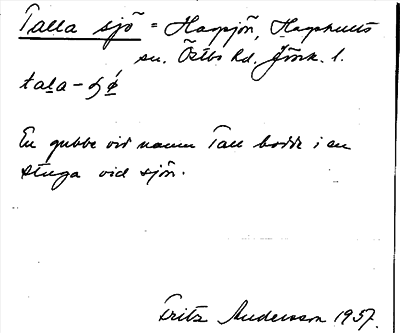 Talla sjö = Hagsjön, Hagshults
sn. Östbo hd. Jönk. l.
tala-
En gubbe vid namn Tall bodde i en
stuga vid sjön.
Fritz Andersson 1957.